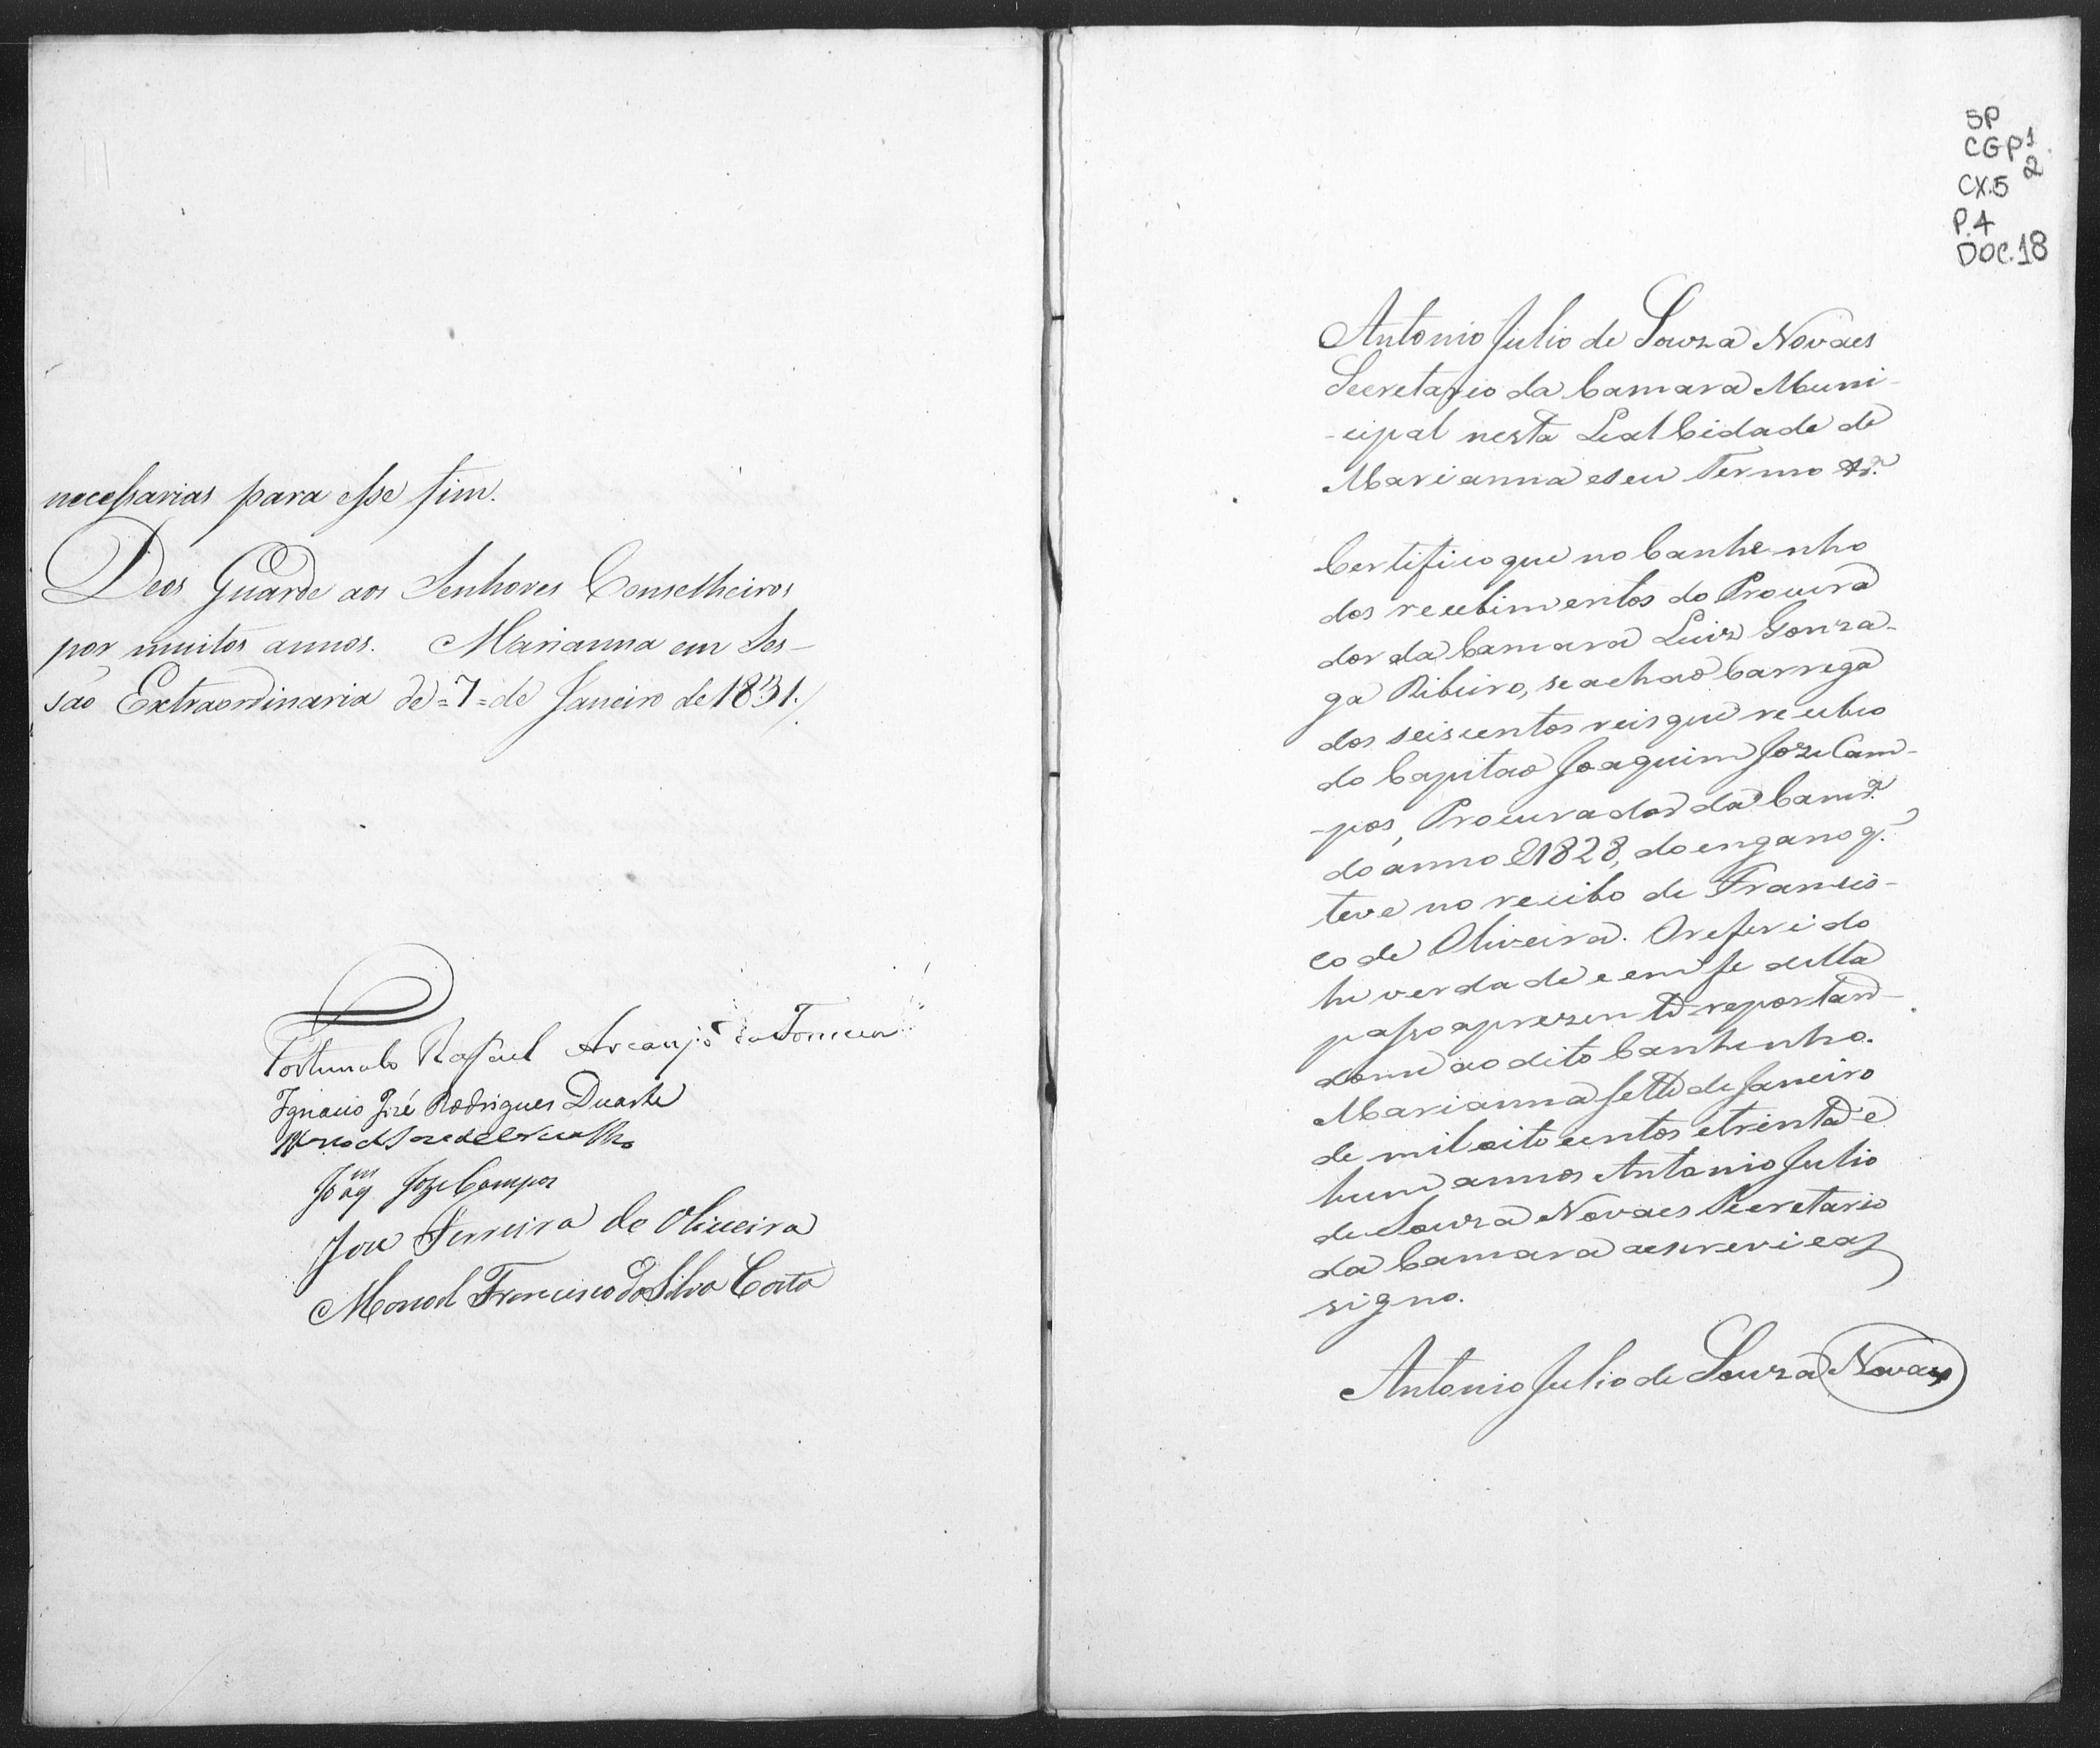 necessarias para esse fim.
Deos Guarde aos Senhores Conselheiros
por muitos annos. Marianna em Ses-
são Extraordinaria de = 7 = de Janeiro de 1831./
Fortunato Rafael Arcanjo da Fonseca
Ignacio José Rodrigues Duarte
Manoel Joze de Carvalho
Joaqm Joze Campos
Joze Ferreira de Oliveira
Manoel Francisco da Silva Costa
SP
CGP1
2
CX.5
P.4
DOC.18
Antonio Julio de Souza Novaes
Secretario da Camara Muni-
-cipal nesta Leal Cidade de
Marianna eseu Termo &.ª
Certifico que no Canhenho
dos recebimentos do Procura
dor da Camara Luiz Gonza-
ga Ribeiro, se achaõ Carrega
dos seiscentos reis que recebeo
do Capitaõ Joaquim Joze Cam-
-pos, Procurador da Camr.ª
do anno d1828, do engano q.
teve no recibo de Francis-
co de Oliveira. Oreferido
he verdade e em fé della
passo aprezente reportan-
dome ao dito Canhenho.
Marianna Sette de Janeiro
de mil oito centos etrinta e
hum annos Antonio Julio
de Souza Novaes Secretario
da Camara aescrevi eas
signo.
Antonio Julio de Souza Novaes